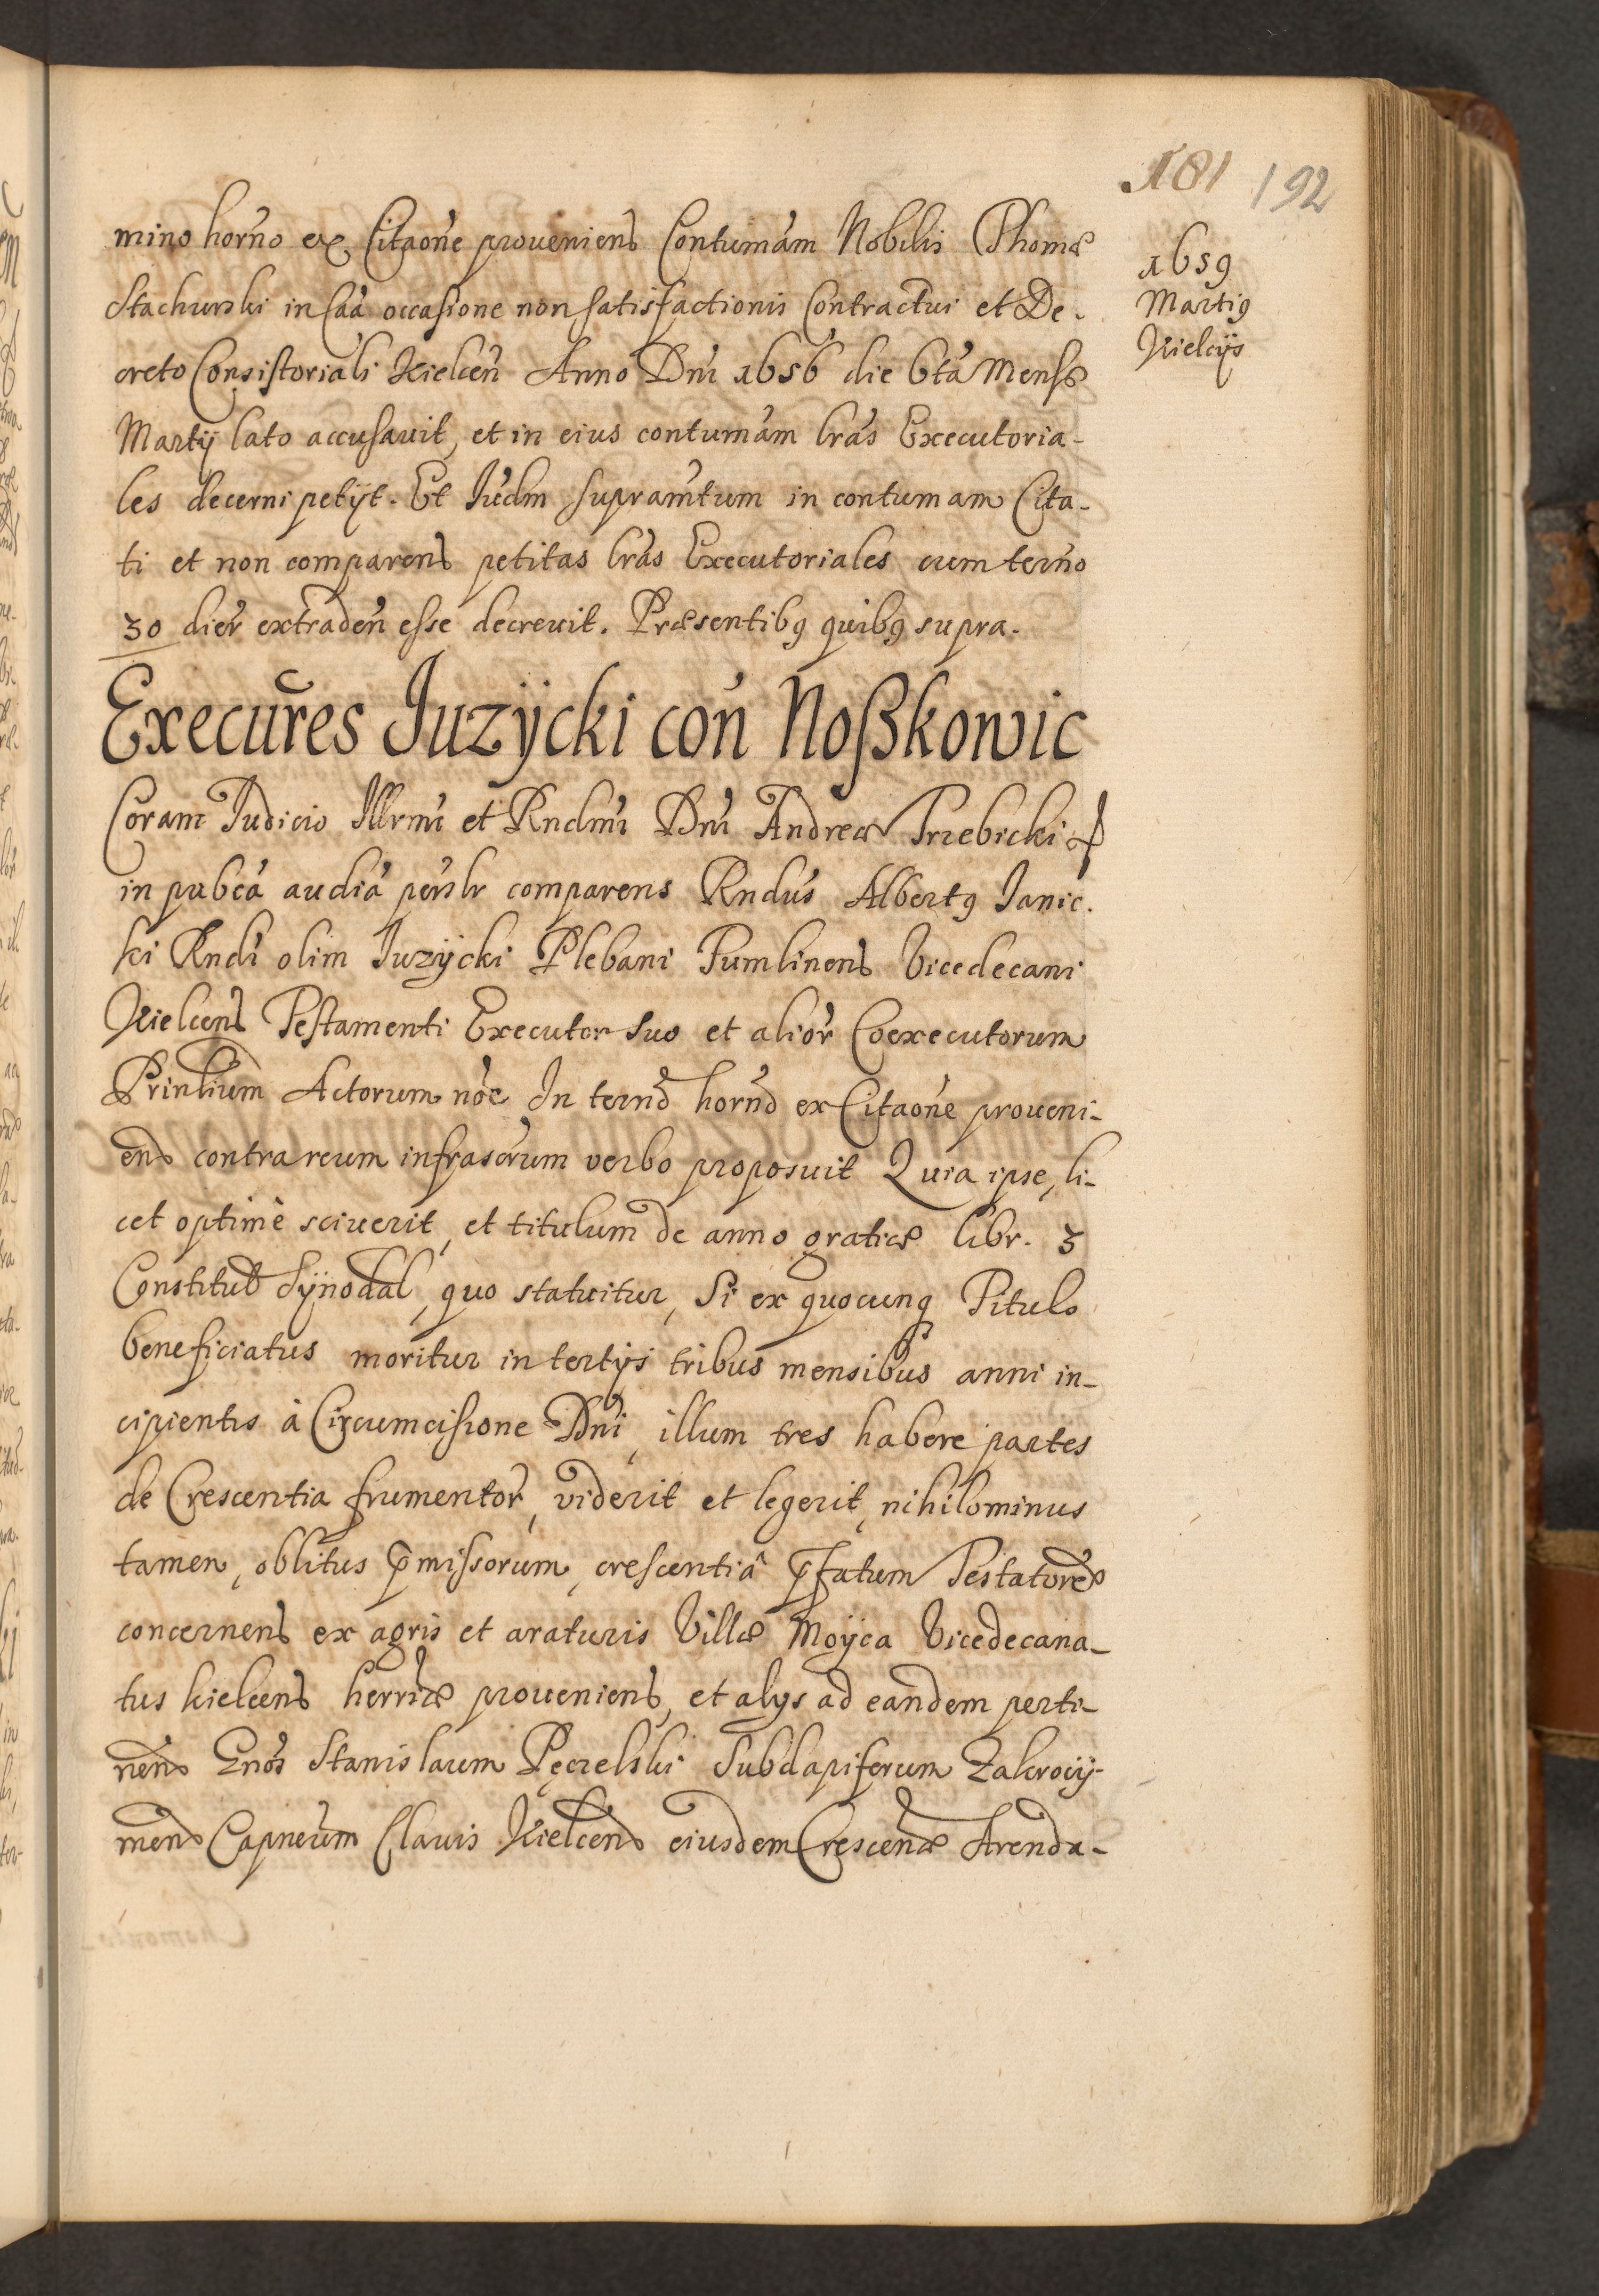 181 192
1659
Martiꝰ
Kielcijs
mino horno ex Citaoñe proueniens Contumam Nobilis Thomæ
Stachurski in Caã occasione non satisfactionis Contractui et De-
creto Consistoriali Kielceñ Anno Dñi 1656 die 6tâ Mensæ
Martij lato accusauit, et in eius contumam lras Executoria-
les decerni petijt. Et Iudm supramtum in contumam Cita-
ti et non comparens petitas lras Executoriales cum terño
30 dier̃ extradeñ esse decrevit. Præsentibꝰ quibꝰ supra.
Execur̃es Juzÿcki coñ Noßkowic
Coram Iudicio Illrmi et Rndmi Dñi Andreæ Trzebicki
in pubca audia pẽnlr comparens Rndus Albertꝰ Janic-
ki Rndi olim Juzÿcki Plebani Tumlinens Vicedecani
Kielcens Testamenti Executor suo et alior̃ Coexecutorum
Prinlium Actorum noe In terno horno ex Citaoñe proueni-
ens contra reum infrascrum verbo proposuit Quia ipse, li-
cet optimè sciverit, et titulum de anno gratiæ libr. 3
Constitut Sÿnodal, quo statuitur, Si ex quocunq Titulo
beneficiatus moritur in tertijs tribus mensibus anni in-
cipientis à Circumcisione Dñi, illum tres habere partes
de Crescentia frumentor̃, viderit et legerit, nihilominus
tamen, oblitus p̃missorum, crescentiâ p̃fatum Testatorẽ
concernens ex agris et araturis Villæ Moÿca Vicedecana-
tus kielcens herriæ proueniens, et alys ad eandem perti-
nens Gnos Stanislaum Pęczelski Subdapiferum Zakroczÿ-
mens Capneum Clavis Kielcens eiusdem Crescenæ Arenda-